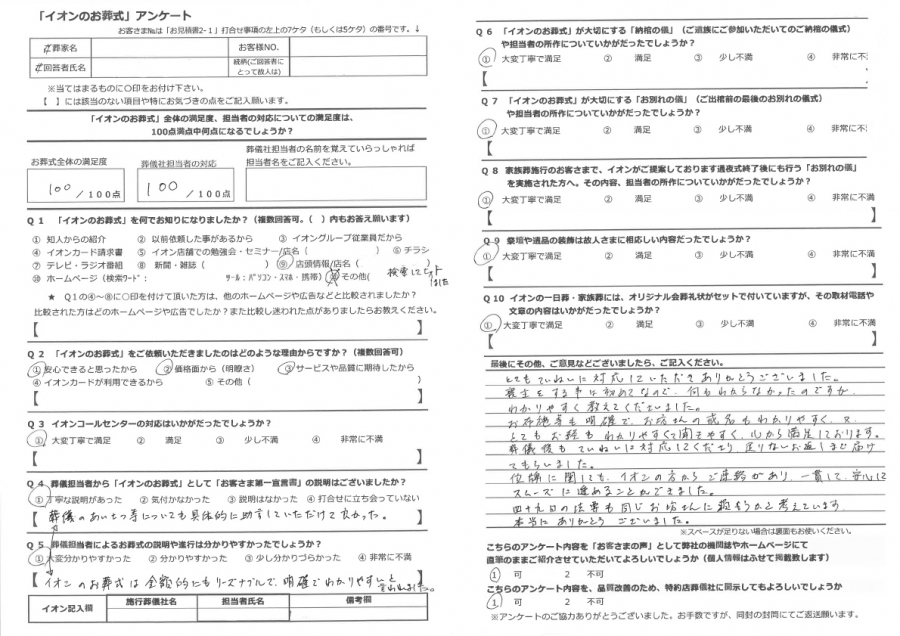 「イオンのお葬式」アンケート
お客さま№は「お見積書2-1」打合せ事項の左上の7ケタ（もしくは5ケタ）の番号です。↓
ご葬家名
お客様NO.
ご回答者氏名
続柄(ご回答者にとって故人は)
※当てはまるものに〇印をお付け下さい。
【 】には該当のない項目や特にお気づきの点をご記入願います。
「イオンのお葬式」全体の満足度、担当者の対応についての満足度は、
100点満点中何点になるでしょうか？
お葬式全体の満足度
葬儀社担当者の対応
葬儀社担当者の名前を覚えていらっしゃれば
担当者名をご記入ください。
100 /100点
100 /100点
Q１ 「イオンのお葬式」を何でお知りになりましたか？（複数回答可。( )内もお答え願います）
① 知人からの紹介 ② 以前依頼した事があるから ③ イオングループ従業員だから
④ イオンカード請求書 ⑤ イオン店舗での勉強会・セミナー/店名（ ） ⑥ チラシ
⑦ テレビ・ラジオ番組 ⑧ 新聞・雑誌（ ） ⑨ 店頭情報/店名（ ）
⑩ ホームページ（検索ワード： ツール：パソコン・スマホ・携帯） その他( 検索してヒット
しました
★ Q１の④～⑧に〇印を付けて頂いた方は、他のホームページや広告などと比較されましたか？
比較された方はどのホームページや広告でしたか？また比較し迷われた点がありましたらお教えください。
【 】
Q２ 「イオンのお葬式」をご依頼いただきましたのはどのような理由からですか？（複数回答可）
① 安心できると思ったから ② 価格面から（明瞭さ） ③ サービスや品質に期待したから
④ イオンカードが利用できるから ⑤ その他（
【 】
Q３ イオンコールセンターの対応はいかがだったでしょうか？
① 大変丁寧で満足 ② 満足 ③ 少し不満 ④ 非常に不満
【 】
Q４ 葬儀担当者から「イオンのお葬式」として「お客さま第一宣言書」の説明はございましたか？
① 丁寧な説明があった ② 気付かなかった ③ 説明はなかった ④ 打合せに立ち会っていない
【 葬儀のあいさつ等についても具体的に助言していただけて良かった。 】
Q５ 葬儀担当者によるお葬式の説明や進行は分かりやすかったでしょうか？
① 大変分かりやすかった ② 分かりやすかった ③ 少し分かりづらかった ④ 非常に不満
【 イオンのお葬式は金額的にもリーズナブルで、明確でわかりやすいと
思われました。 】
イオン記入欄
施行葬儀社名
担当者氏名
備考欄
Q６ 「イオンのお葬式」が大切にする「納棺の儀」（ご遺族にご参加いただいてのご納棺の儀式）
や担当者の所作についていかがだったでしょうか？
① 大変丁寧で満足 ② 満足 ③ 少し不満 ④ 非常に不
【
Q７ 「イオンのお葬式」が大切にする「お別れの儀」（ご出棺前の最後のお別れの儀式）
や担当者の所作についていかがだったでしょうか？
① 大変丁寧で満足 ② 満足 ③ 少し不満 ④ 非常に不
【
Q８ 家族葬施行のお客さまで、イオンがご提案しております通夜式終了後にも行う「お別れの儀」
を実施された方へ。その内容、担当者の所作についていかがだったでしょうか？
① 大変丁寧で満足 ② 満足 ③ 少し不満 ④ 非常に不満
【 】
Q９ 祭壇や遺品の装飾は故人さまに相応しい内容だったでしょうか？
① 大変丁寧で満足 ② 満足 ③ 少し不満 ④ 非常に不満
【 】
Q10 イオンの一日葬・家族葬には、オリジナル会葬礼状がセットで付いていますが、その取材電話や
文章の内容はいかがだったでしょうか？
① 大変丁寧で満足 ② 満足 ③ 少し不満 ④ 非常に不満
【 】
最後にその他、ご意見などございましたら、ご記入ください。
とてもていねいに対応していただきありがとうございました。
喪主をする事は初めてなので、何もわからなかったのですが、
わかりやすく教えてくださいました。
お布施等も明確で、お坊さんの戒名もわかりやすく、又、
とてもお経もわかりやすくて聞きやすく、心から満足しております。
葬儀後もていねいに対応してくださり、足りないお返しまで届け
てもらいました。
位牌に関しても、イオンの方からご連絡があり、一貫して、安心して
スムーズに進めることができました。
四十九日の法事も同じお坊さんに頼もうかと考えています。
本当にありがとうございました。
※スペースが足りない場合は裏面もお使いください。
こちらのアンケート内容を「お客さまの声」として弊社の機関誌やホームページにて
直筆のままご紹介させていただいてよろしいでしょうか（個人情報はふせて掲載致します）
1 可 2 不可
こちらのアンケート内容を、品質改善のため、特約店葬儀社に開示してもよろしいでしょうか
1 可 2 不可
※アンケートのご協力ありがとうございました。お手数ですが、同封の封筒にてご返送願います。